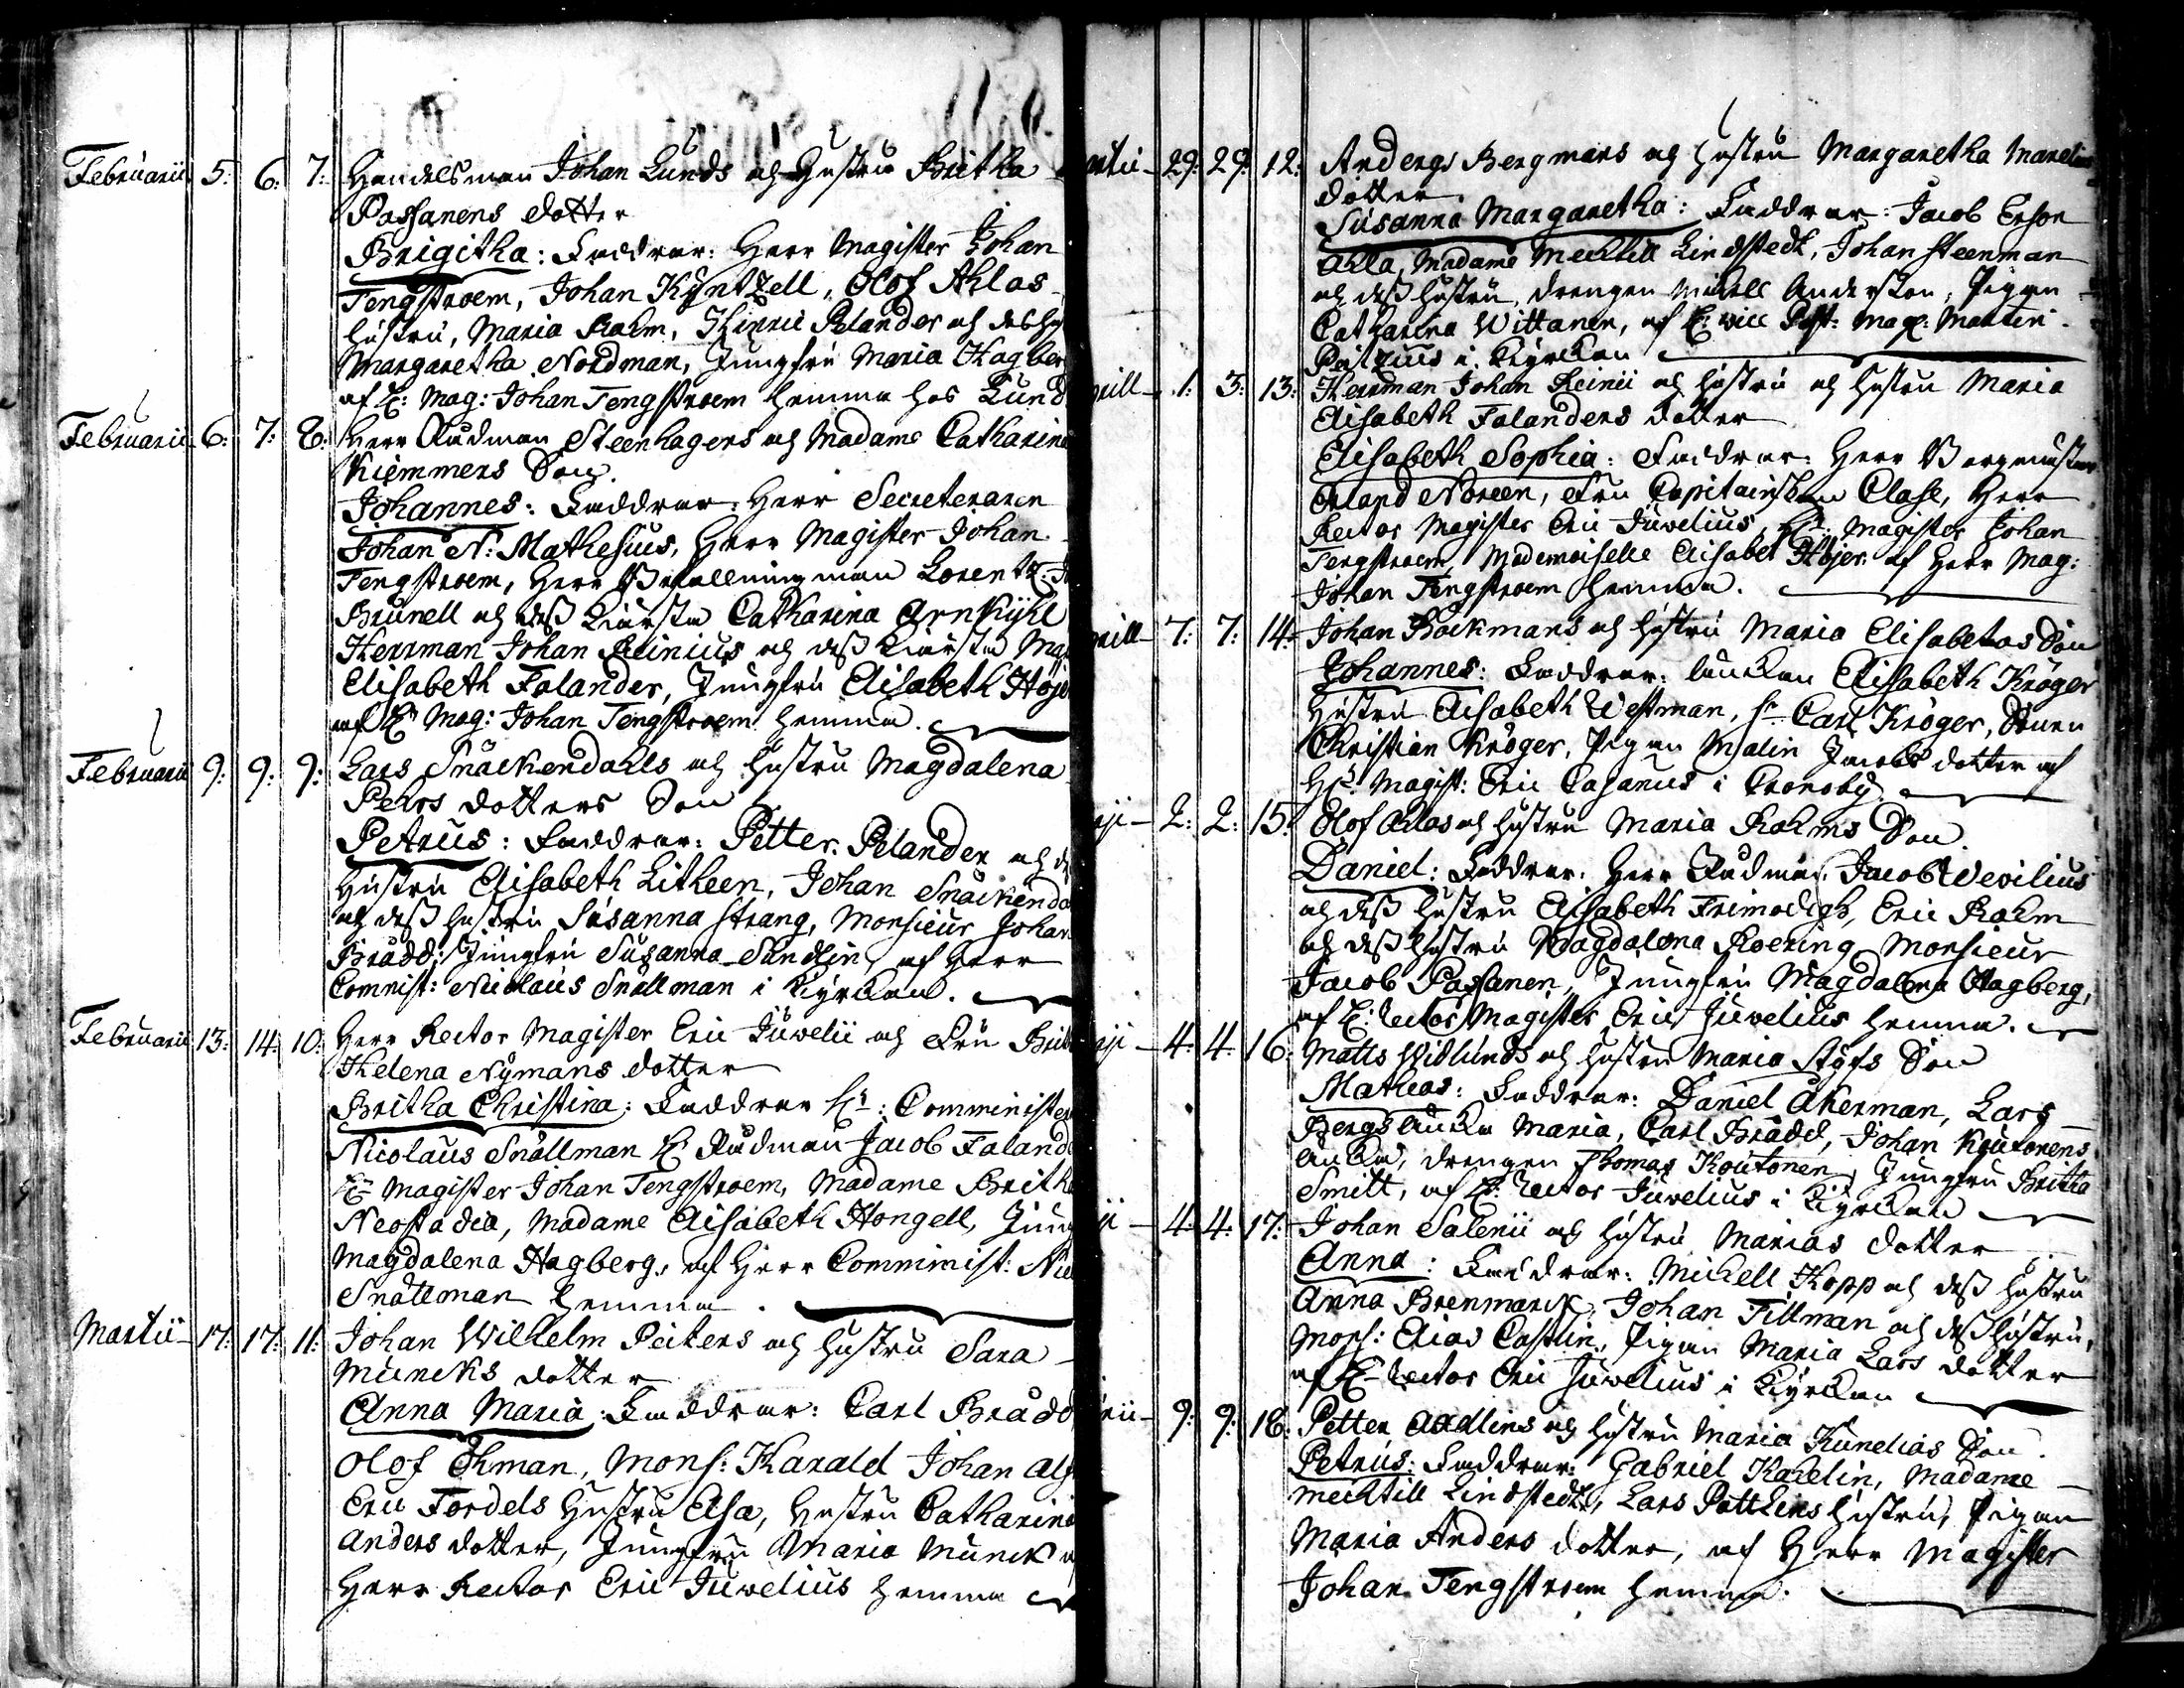 Februarii 5: 6: 7: Handelsman Johan Lunds och Hustru Britha
Passanens dotter
Brigitha: Faddrar: Herr Magister Johan
Tengstroem, Johan Kyntzell, Olof Ahlas
hustru, Maria Rahm, Hinric Pelander och des
Margaretha Nordman, Jungfru Maria Hagber
af H: Mag: Johan Tengstroem hemma hos Lund
Februarii 6: 7: 8: Herr Rådman Steenhagens och Madame Catharina
Kiemmers Son.
Johannes: Faddrar: Herr Secreteraren
Johan N: Mathesius, Herr Magister Johan
Tengstroem, Herr Befallningman Lorentz
Brunell och dess Kiärsta Catharina Arnkijhl
Herrman Johan Reinius och dess Kiärsta Ma
Elisabeth Falander, Jungfru Elisabeth Höje
af H: Mag: Johan Tengstroem hemma.
Februarii 9: 9: 9: Lars Snäckendahls och Hustru Magdalena
Pehrs dotters Son
Petrus: Faddrar: Petter Pelander och d
Hustru Elisabeth Litheen, Johan Snäckenda
och dess hustru Susanna Strang, Monsieur Johan
Brådd, Jungfru Susanna Sundlin, af Herr
Commist: Nicolaus Snällman i Kyrckan.
Februarii 13: 14: 10: Herr Rector Magister Eric Juvelii och Fru Brit
Helena Nymans dotter
Britha Christina: Faddrar Hr: Comminister
Nicolaus Snällman H: Rådman Jacob Faland
Hr Magister Johan Tengstroem, Madame Brith
Neostadia, Madame Elisabeth Hongell, Jung
Magdalena Hagberg, af Herr Comminist: Nic
Snällman hemma.
Martii 17: 17: 11: Johan Wilhelm Peiters och Hustru Sara
Muncks dotter
Anna Maria: Faddrar: Carl Brådd
Olof Öhman, Mons: Harald Johan Alf
Eric Fordels Hustru Elsa, Hustru Catharina
Anders dotter, Jungfru Maria Munck
Herr Rector Eric Juvelius hemma
rtii 29: 29: 12: Anders Bergmans och Hustru Margaretha Marelius
dotter
Susanna Margaretha: Faddrar: Jacob Erson
Ahla, Madame Mechtill Lindstedt, Johan Steenman
och dess hustru, drengen Mickell Anderson, Pigan
Catharina Wittanen, af H: Vice Past: Mag: Marten
i Kyrckan
rill 1: 3: 13: Herrman Johan Reinii och Hustru och Hustru Maria
Elisabeth Falanders dotter
Elisabeth Sophia: Faddrar: Herr Borgmästar
Erland Noreen, Fru Capitainskan Clase, Herr
Rector Magister Eric Juvelius, Hr: Magister Johan
Tengstroem, Mademoiselle Elisabet Höjer af Herr Mag:
Johan Tengstroem hemma.
rill 7: 7: 14: Johan Backmans och Hustru Maria Elisabetas Son
Johannes: Faddrar: Enckan Elisabeth Kröger
Hustru Elisabeth Westman, Hr Carl Kröger,
Christian Kröger, Pigan Malin Jacobs dotter af
Hr: Magist: Eric Cajanus i Cronoby
aji 2: 2: 15: Olof Ahlas och Hustru Maria Rahms Son
Daniel: Faddrar: Herr Rådman Jacob Wevilius
och dess Hustru Elisabeth Frimodigh, Eric Rahm
och dess Hustru Magdalena Roering, Monsieur
Jacob Passanen, Jungfru Magdalena Hagberg,
af H: Rector Magister Eric Juvelius hemma.
aji 4: 4: 16: Matts Widlunds och Hustru Maria Styfs Son
Mathias: Faddrar: Daniel Åkerman, Lars
Bergs Encka Maria, Carl Brådd, Johan Koutonens
Encka, drengen Thomas Koutonen, Jungfru Britha
Smitt, af H: Rector Juvelius i Kyrckan
ji 4: 4: 17: Johan Salenii och Hustru Marias dotter
Anna: Faddrar: Mickell Kopp och dess Hustru
Anna Brenmarck, Johan Tillman och dess Hustru,
Mons: Elias Castlin, Pigan Maria Lars dotter
af Hr Rector Eric Juvelius i Kyrckan
nii 9: 9: 18: Petter Aadlins och Hustru Maria Kunelias Son
Petrus: Faddrar: Gabriel Karelin, Madame
Mechtill Lindstedt, Lars Pettlins Hustru, Pigan
Maria Anders dotter, af Herr Magister
Johan Tengstroem hemma.